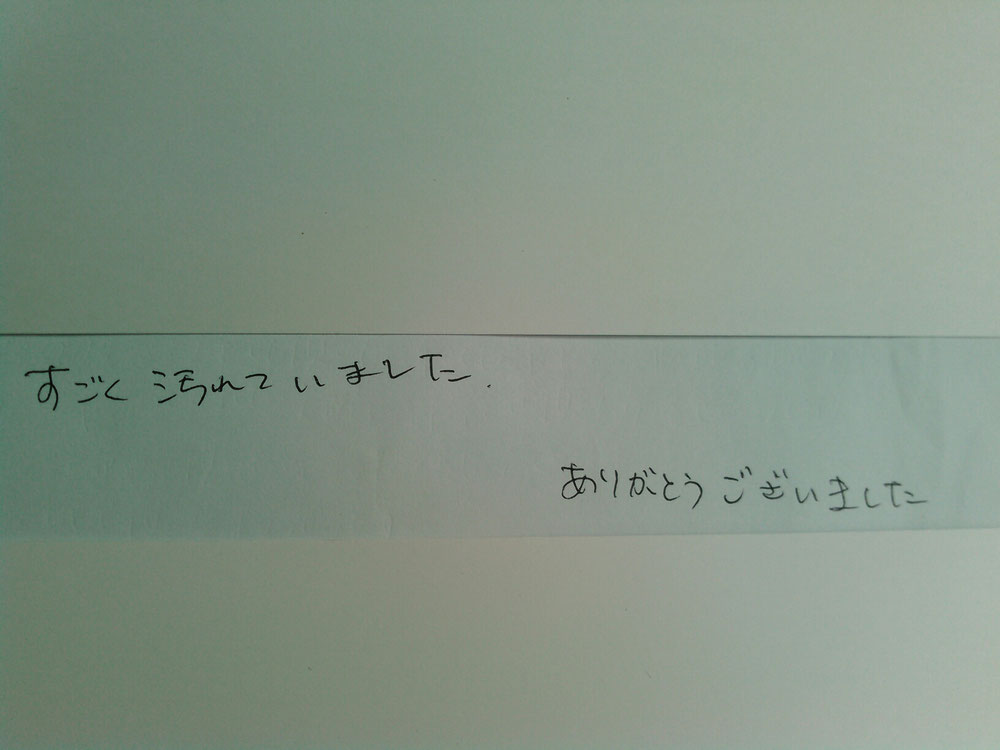 すごく汚れていました.
ありがとうございました